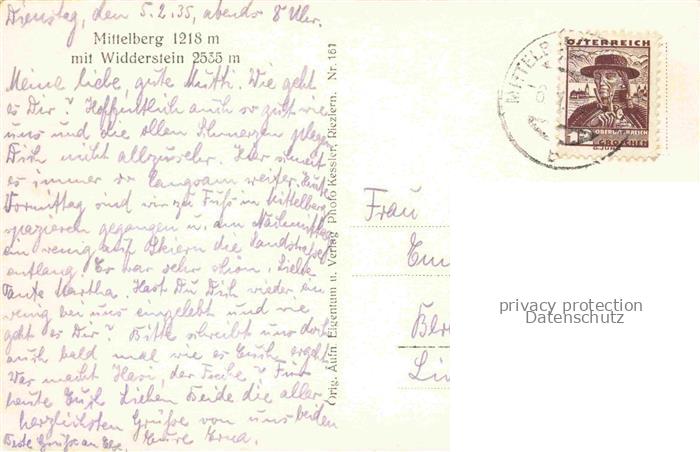 Dienstag, den 5.2.35, abends 8 Uhr.
Mittelberg 1218 m
mit Widderstein 2535 m
Meine liebe, gute Mutti. Wie geht
es Dir? Hoffentlich auch so gut wie
uns und die ollen Schmerzen plagen
Dich nicht allzusehr. Hier schneit
es immer so langsam weiter. Heute
Vormittag sind wir zu Fuß in Mittelberg
spazieren gegangen u. am Nachmittag
ein wenig auf Skiern die Landstraße
entlang. Es war sehr schön. Liebe
Tante Martha. Hast Du Dich wieder ein
wenig bei uns eingelebt und wie
geht es Dir? Bitte schreibt uns doch
auch bald mal wie es Euch ergeht.
Was macht Hasi, der Freche? Für
heute Euch lieben Beide die aller-
herzlichsten Grüße von uns beiden
Beste Grüße an Else. Eure Erna.
Orig. Aufn. Eigentum u. Verlag Photo Kessler, Riezlern. Nr. 161
MITTELB
ÖSTERREICH
OBERÖSTERREICH
GROSCHEN
b
Frau
Em
Li
privacy protection
Datenschutz